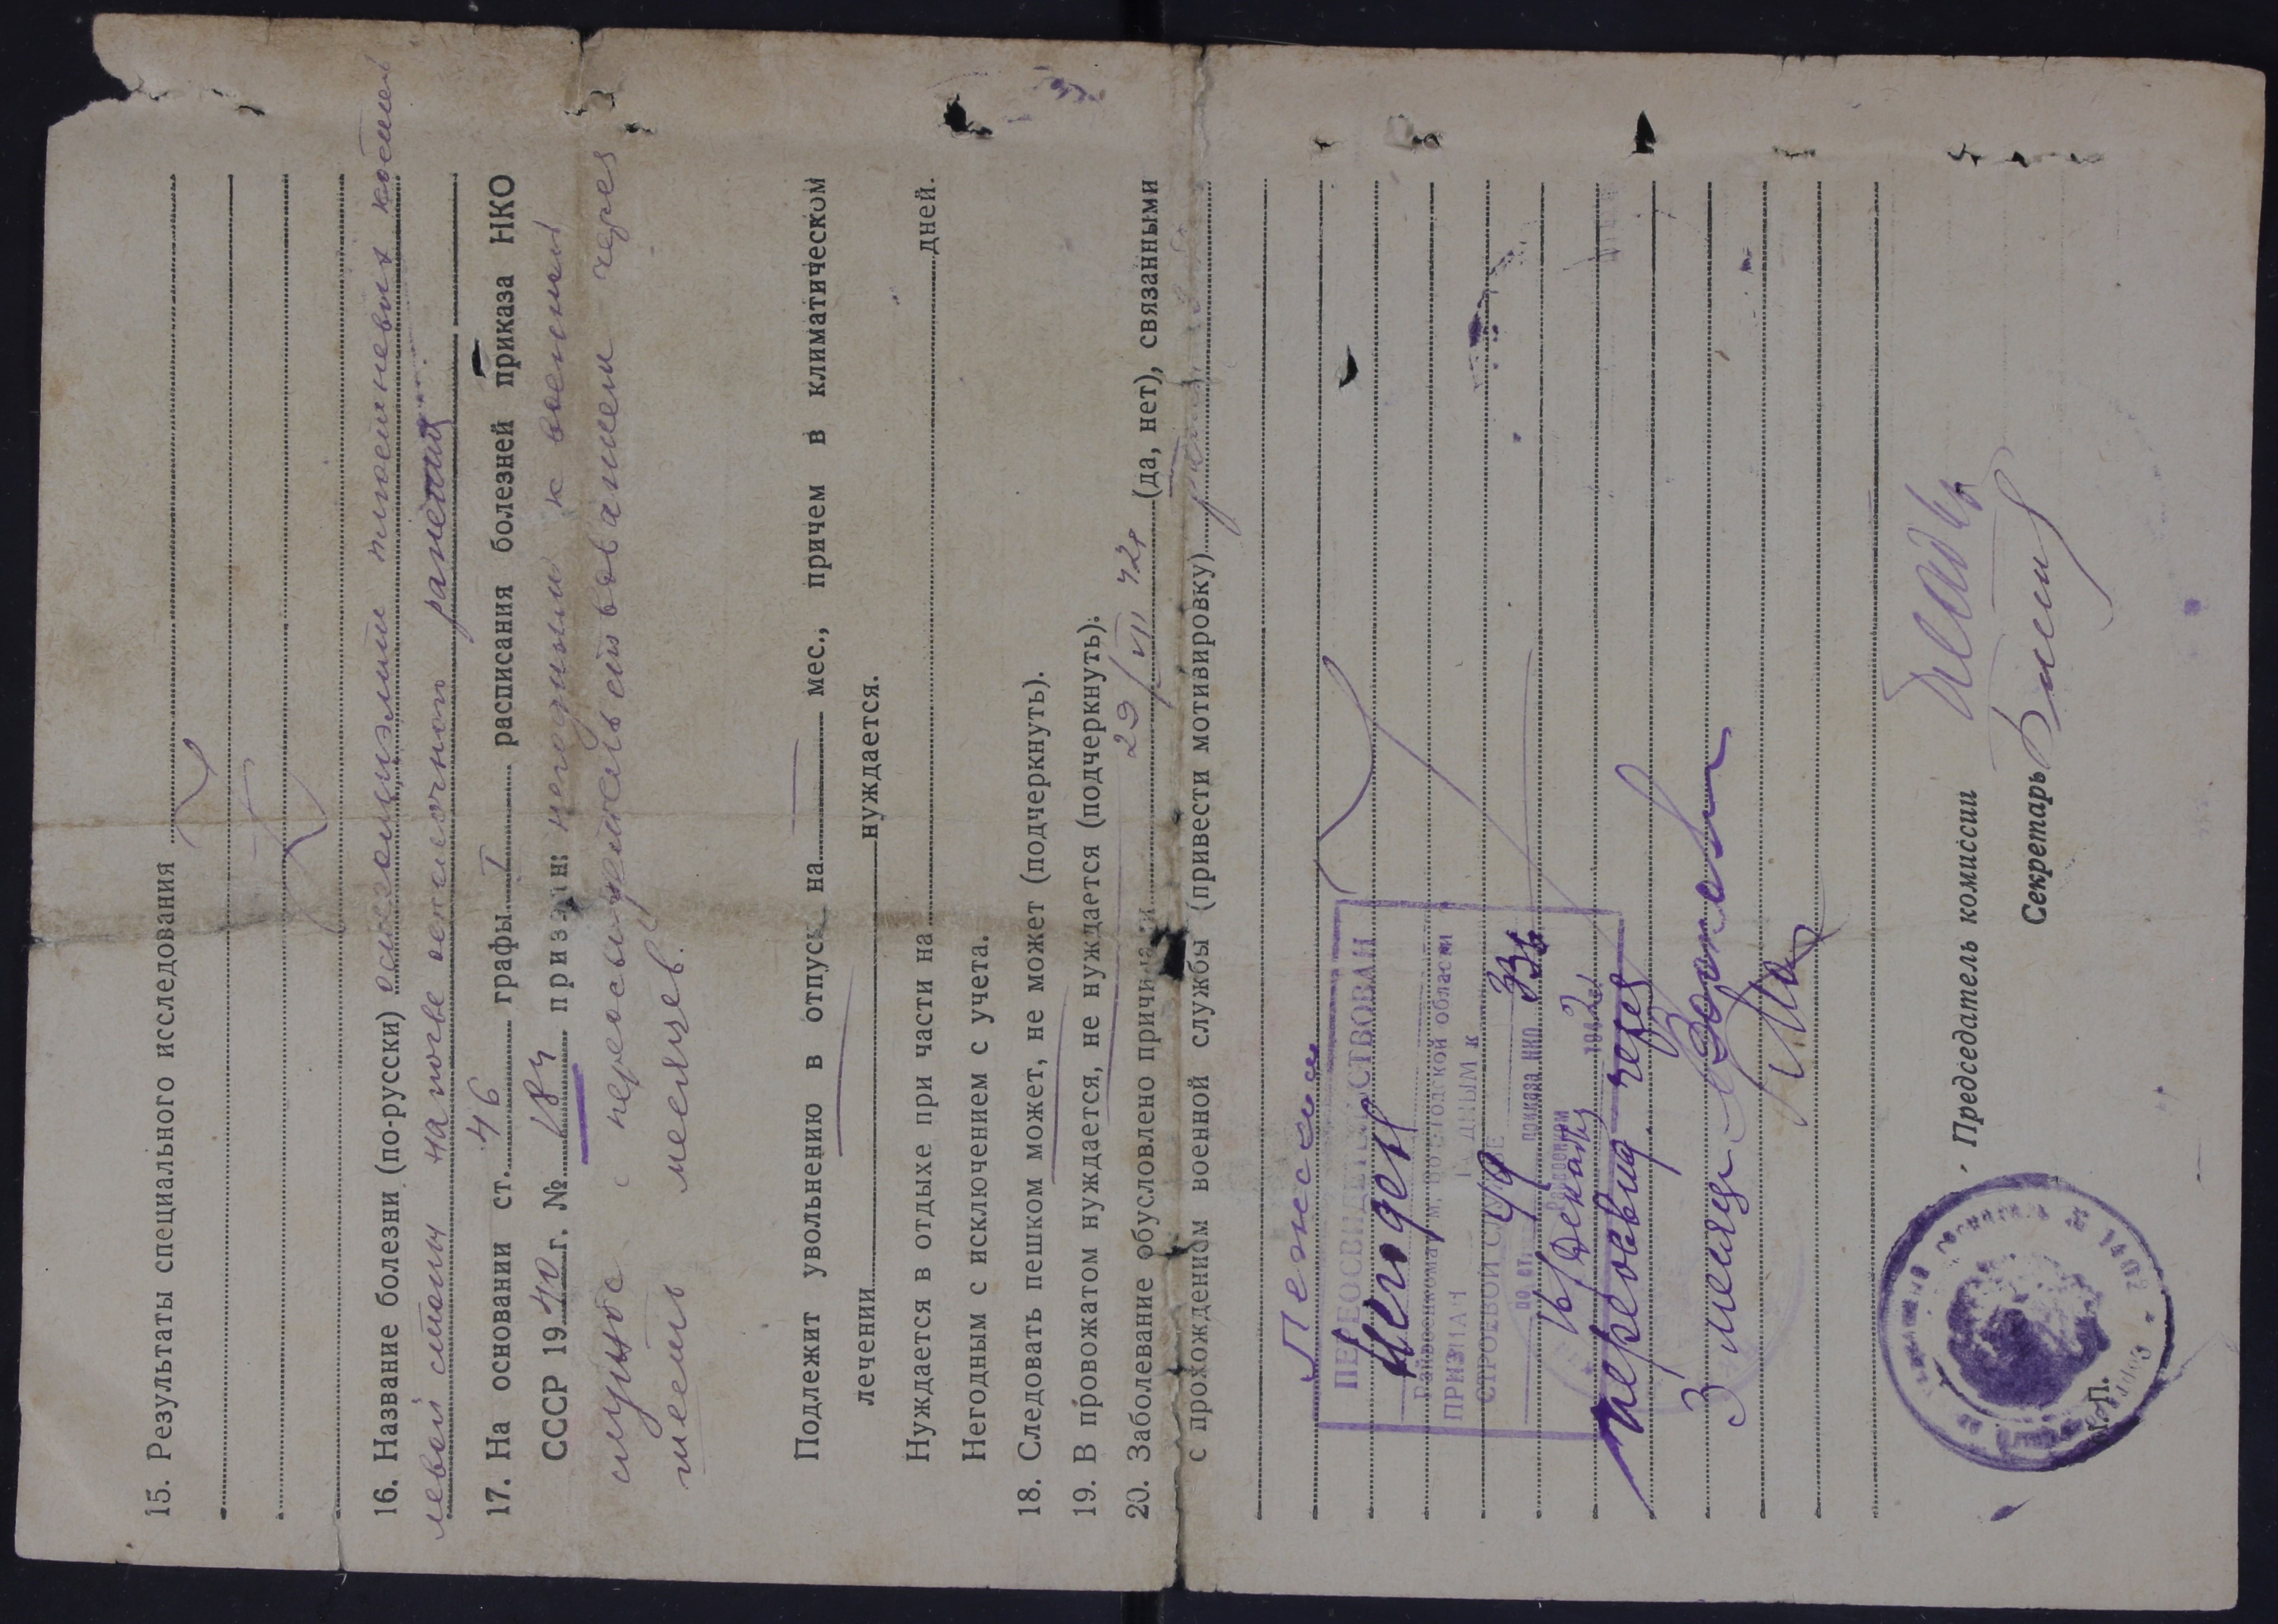 15. Результаты специального исследования
16. Название болезни (по-русски) остеомиэлит плюсневых костей
левой стопы на почве осколочного ранения
17. На основании ст. 46 графы I расписания болезней приказа НКО
СССР 1940 г. № 184 признан: негодным к военной
службе с переосвидетельствованием через
шесть месяцев.
Подлежит увольнению в отпуск на мес., причем в климатическом
лечении нуждается.
Нуждается в отдыхе при части на дней.
Негодным с исключением с учета.
18. Следовать пешком может, не может (подчеркнуть).
19. В провожатом нуждается, не нуждается (подчеркнуть).
20. Заболевание обусловлено причинами 29/VII 42г (да, нет), связанными
с прохождением военной службы (привести мотивировку)
ПЕРЕОСВИДЕТЕЛЬСТВОВАН
Негоден
Райвоенкомат области
ПРИЗНАН ГОДНЫМ К
СТРОЕВОЙ СЛУЖБЕ
по ст. приказа НКО
16 декабря 1942 г.
через
3 месяца
Председатель комиссии
Секретарь
М.П.